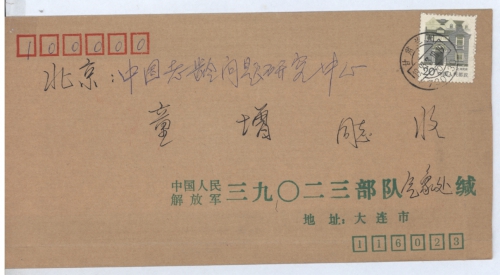 100000
北京:中国老龄问题研究中心
童 增 同志 收
中国人民
解放军 三九〇二三部队 气象处 缄
地 址: 大 连 市
116023
20